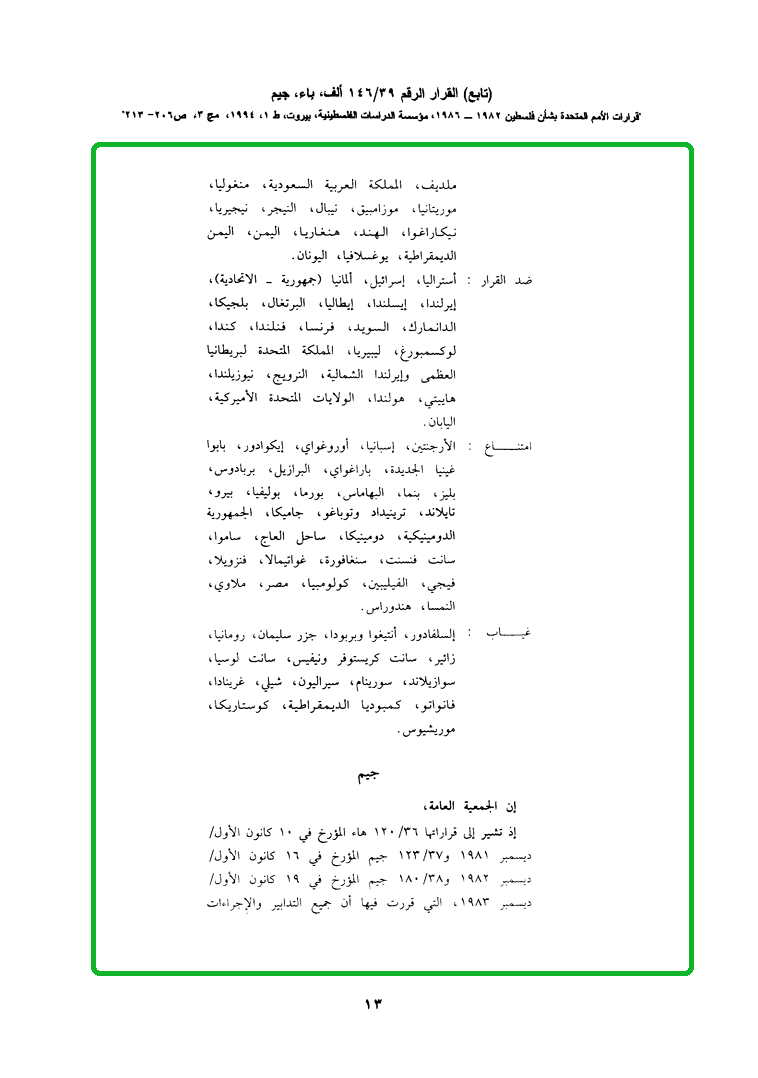 (تابع) القرار الرقم ١٤٦/٣٩ ألف، باء، جيم
"قرارات الأمم المتحدة بشأن فلسطين ١٩٨٢ ــ ١٩٨٦، مؤسسة الدراسات الفلسطينية، بيروت، ط ١، ١٩٩٤، مج ٣، ص٢٠٦- ٢١٣"
ملديف، المملكة العربية السعودية، منغوليا،
موريتانيا، موزامبيق، نيبال، النيجر، نيجيريا،
نيكاراغوا، الهند، هنغاريا، اليمن، اليمن
الديمقراطية، يوغسلافيا، اليونان.
ضد القرار : أستراليا، إسرائيل، ألمانيا (جمهورية ــ الاتحادية)،
إيرلندا، إيسلندا، إيطاليا، البرتغال، بلجيكا،
الدانمارك، السويد، فرنسا، فنلندا، كندا،
لوكسمبورغ، ليبيريا، المملكة المتحدة لبريطانيا
العظمى وإيرلندا الشمالية، النرويج، نيوزيلندا،
هاييتي، هولندا، الولايات المتحدة الأميركية،
اليابان.
امتنـــــاع : الأرجنتين، إسبانيا، أوروغواي، إيكوادور، بابوا
غينيا الجديدة، باراغواي، البرازيل، بربادوس،
بليز، بنما، البهاماس، بورما، بوليفيا، بيرو،
تايلاند، ترينيداد وتوباغو، جاميكا، الجمهورية
الدومينيكية، دومينيكا، ساحل العاج، ساموا،
سانت فنسنت، سنغافورة، غواتيمالا، فنزويلا،
فيجي، الفيليبين، كولومبيا، مصر، ملاوي،
النمسا، هندوراس.
غيـــــاب : إلسلفادور، أنتيغوا وبربودا، جزر سليمان، رومانيا،
زائير، سانت كريستوفر ونيفيس، سانت لوسيا،
سوازيلاند، سورينام، سيراليون، شيلي، غرينادا،
فانواتو، كمبوديا الديمقراطية، كوستاريكا،
موريشيوس.
جيم
إن الجمعية العامة،
إذ تشير إلى قراراتها ١٢٠/٣٦ هاء المؤرخ في ١٠ كانون الأول/
ديسمبر ١٩٨١ و١٢٣/٣٧ جيم المؤرخ في ١٦ كانون الأول/
ديسمبر ١٩٨٢ و١٨٠/٣٨ جيم المؤرخ في ١٩ كانون الأول/
ديسمبر ١٩٨٣، التي قررت فيها أن جميع التدابير والإجراءات
١٣